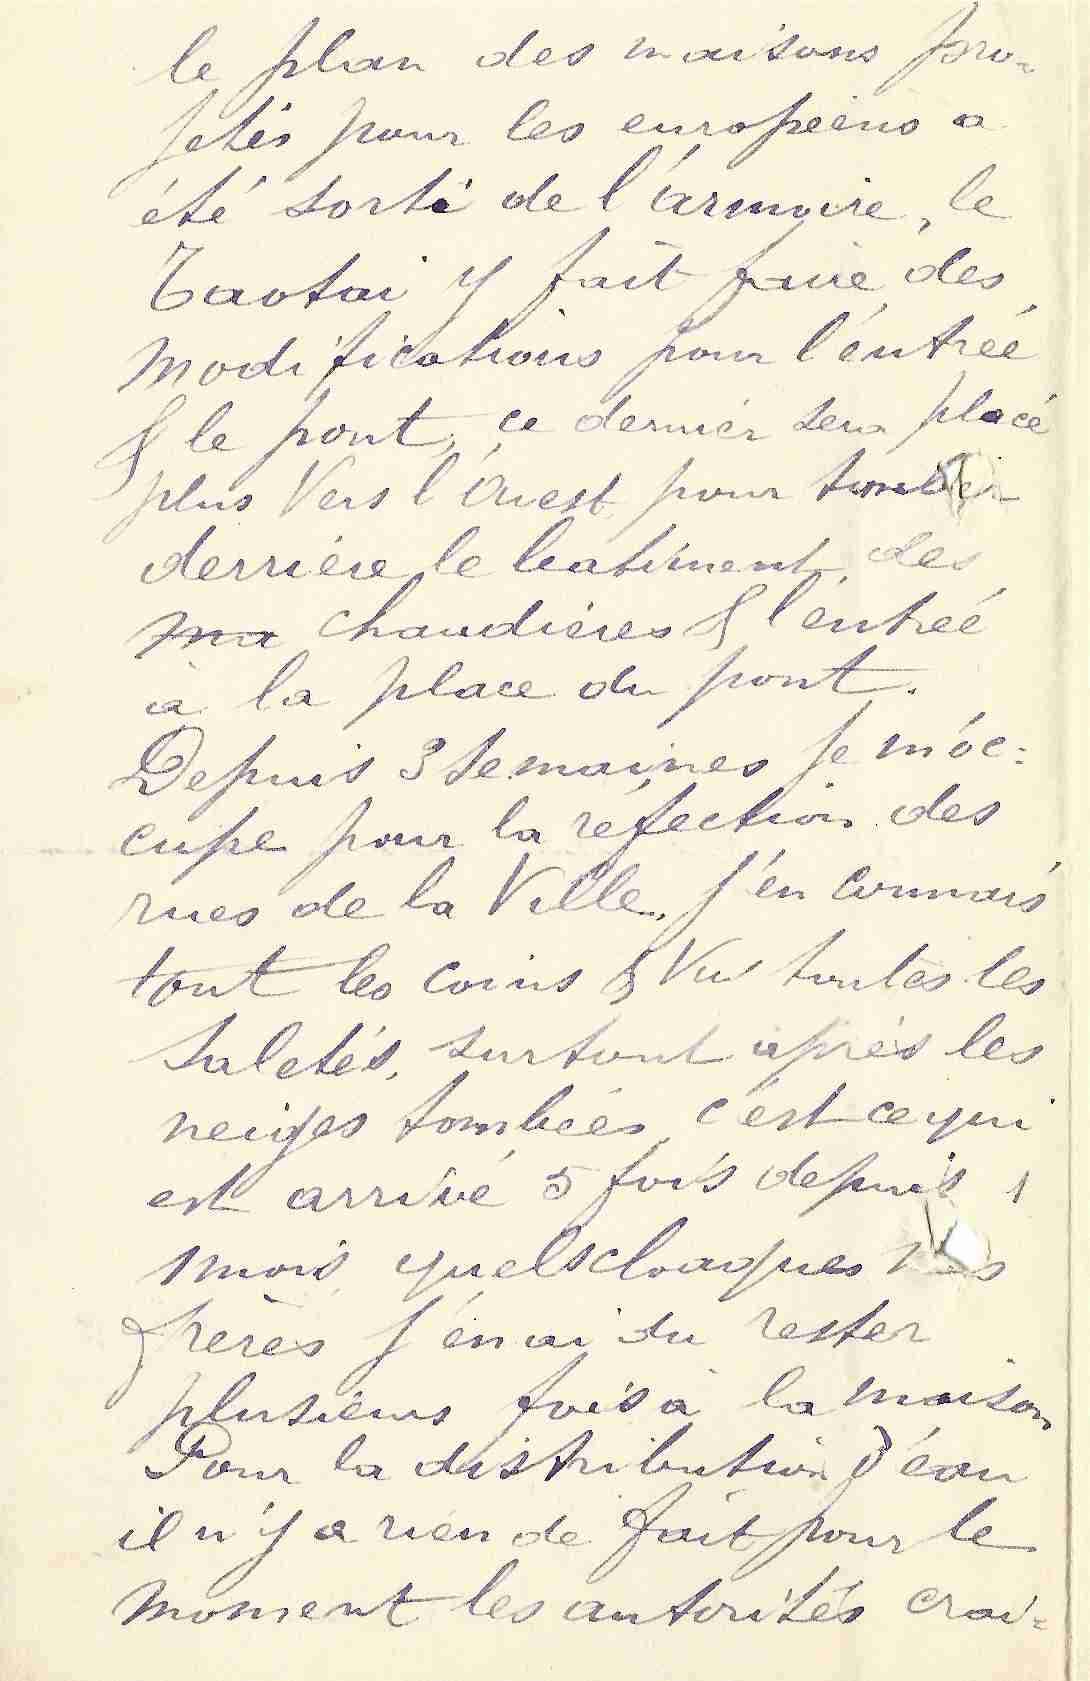 le plan des maisons pro-
jetés pour les européens a
été sorti de l'armoire, le
Taotai y fait faire des
modifications pour l'entrée
& le pont, ce dernier sera placé
plus vers l'ouest pour tomber
derrière le batiment des
ma chaudières & l'entrée
à la place du pont.
Depuis 3 semaines je m'oc=
cupe pour la réfection des
rues de la Ville, j'en connais
tout les coins & vu toutes les
saletés, surtout après les
neiges tombées, c'est ce qui
est arrivé 5 fois depuis 1
mois, quels cloaques mes
frères j'en ai du rester
plusieurs fois à la maison
Pour la distribution d'eau
il n'y a rien de fait pour le
moment les autorités croi=